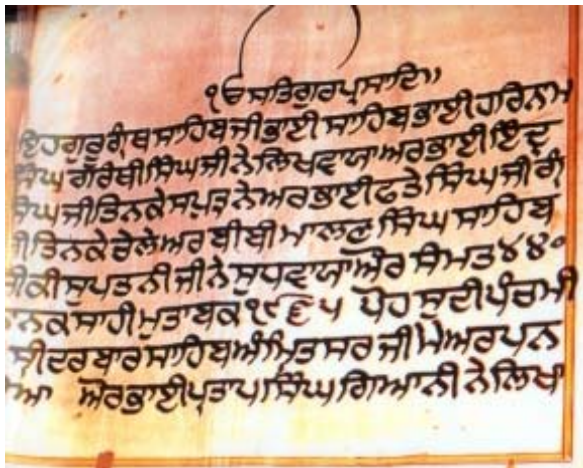 ੴ ਸਤਿਗੁਰਪ੍ਰਸਾਦਿ॥
ਇਹਗੁਰੂਗ੍ਰੰਥਸਾਹਿਬਜੀਭਾਈਸਾਹਿਬਭਾਈਹਰਿਨਾਮ
ਸਿੰਘ ਗ੍ਰੰਥੀਸਿੰਘਜੀਨੇਲਿਖਵਾਯਾਅਰਭਾਈਇੰਦ੍ਰ
ਸਿੰਘਜੀਤਿਨਕੇਸਪੁਤ੍ਰਨੇਅਰਭਾਈਫਤੇਸਿੰਘਜੀਗ੍ਰੰ
ਤਿਨਕੇਚੇਲੇਅਰਬੀਬੀਮਾਲਣ ਸਿੰਘ ਸਾਹਿਬ
ਜੀਕੀਸੁਪਤਨੀਜੀਨੇਸੁਧਵਾਯਾਔਰ ਸੰਮਤ੪੪੦
ਨਾਨਕਸਾਹੀਮੁਤਾਬਕ੧੯੬੫ ਪੋਹਸੁਦੀਪੰਚਮੀ
ਸ੍ਰੀਦਰਬਾਰਸਾਹਿਬਅੰਮ੍ਰਿਤਸਰਜੀਮੇਂਅਰਪਨ
ਔਰਭਾਈਪ੍ਰਤਾਪਸਿੰਘਗਿਆਨੀਨੇਲਿਖਾ